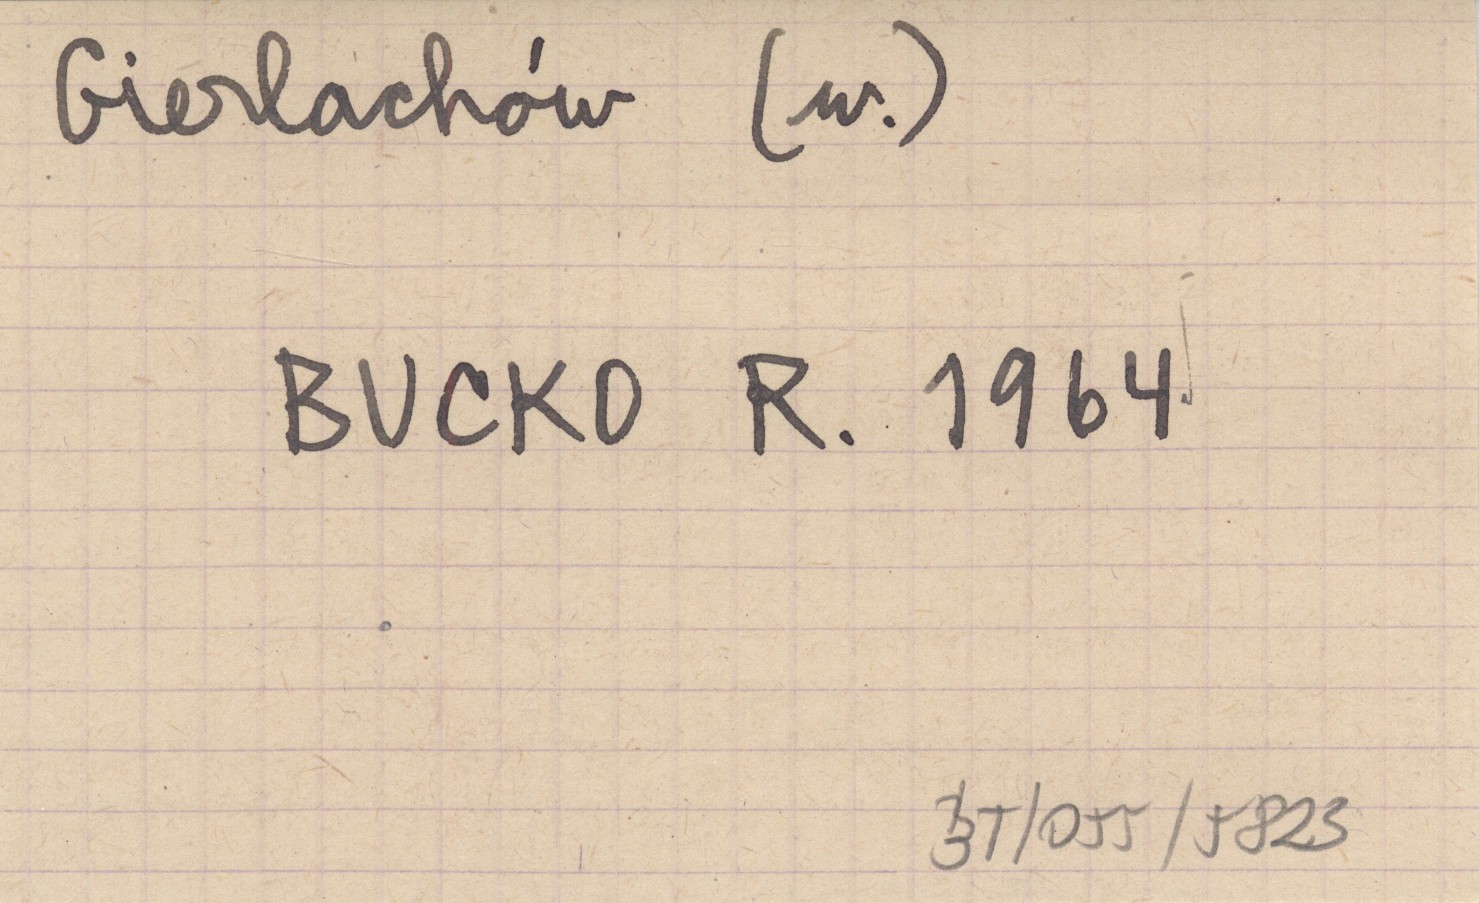 Gierlachów (w.)
BUCKO R. 1964
/055/5823